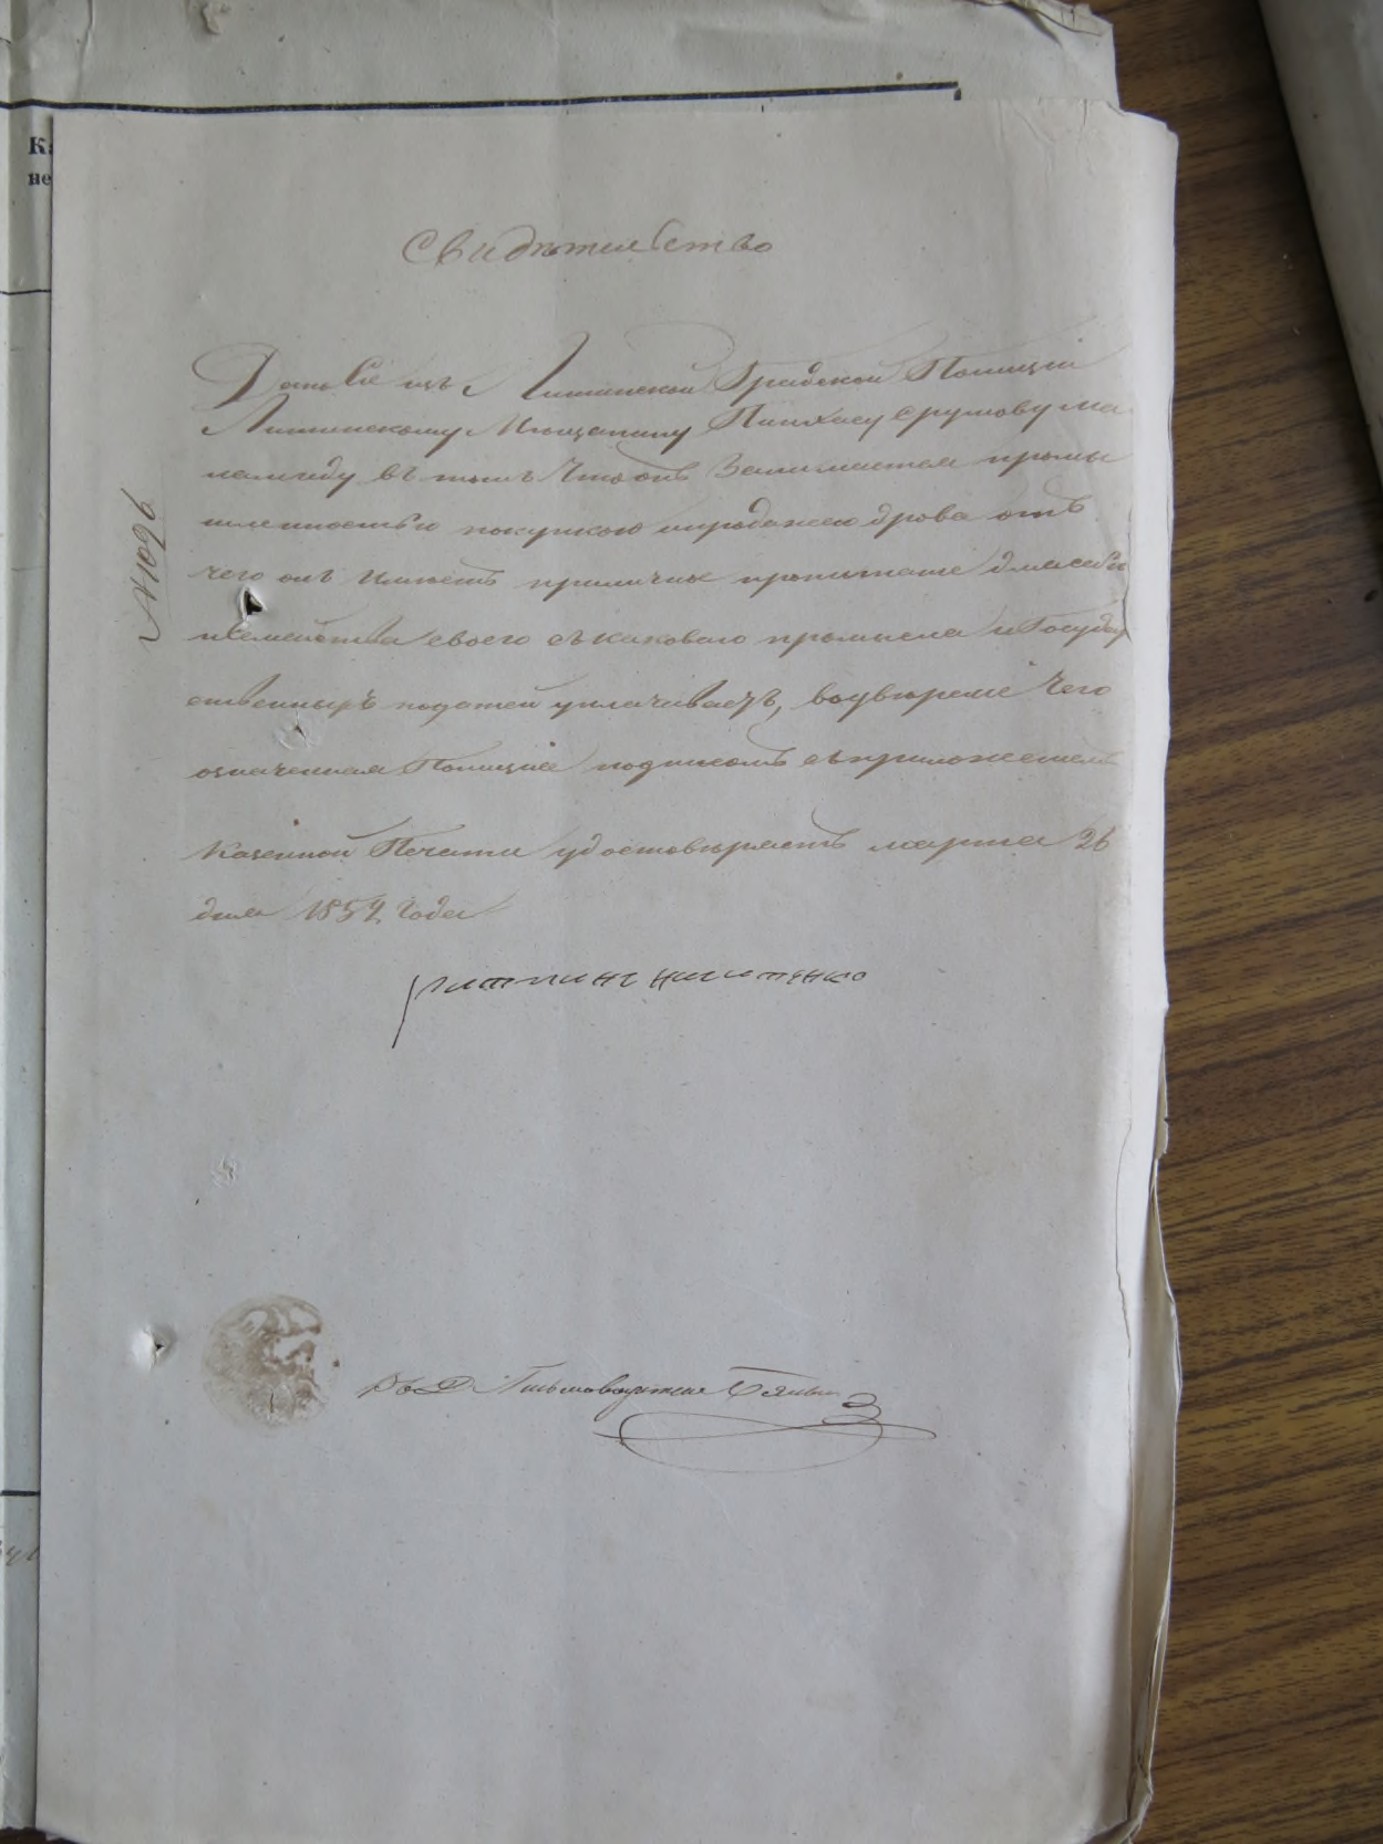 Ка
не
Свидѣтельство
Дано Сіе изъ Литинской Градской Полиціи
Литинскому Мѣщанину Пинхасу Срулову Ма
въ томъ Что онъ Занимается промы
шленностью покупкою и продажею дрова отъ
чего онъ Имѣетъ приличное пропитаніе для себя
и Семейства своего съ каковаго промысла и Государ
ственныхъ податей уплачиваетъ, Чего
означенная Полиція подписомъ съ приложеніемъ
Казенной Печати удостовѣряетъ марта 26
дня 1852 Года
№ 1096
Никитенко
Письмоводителя